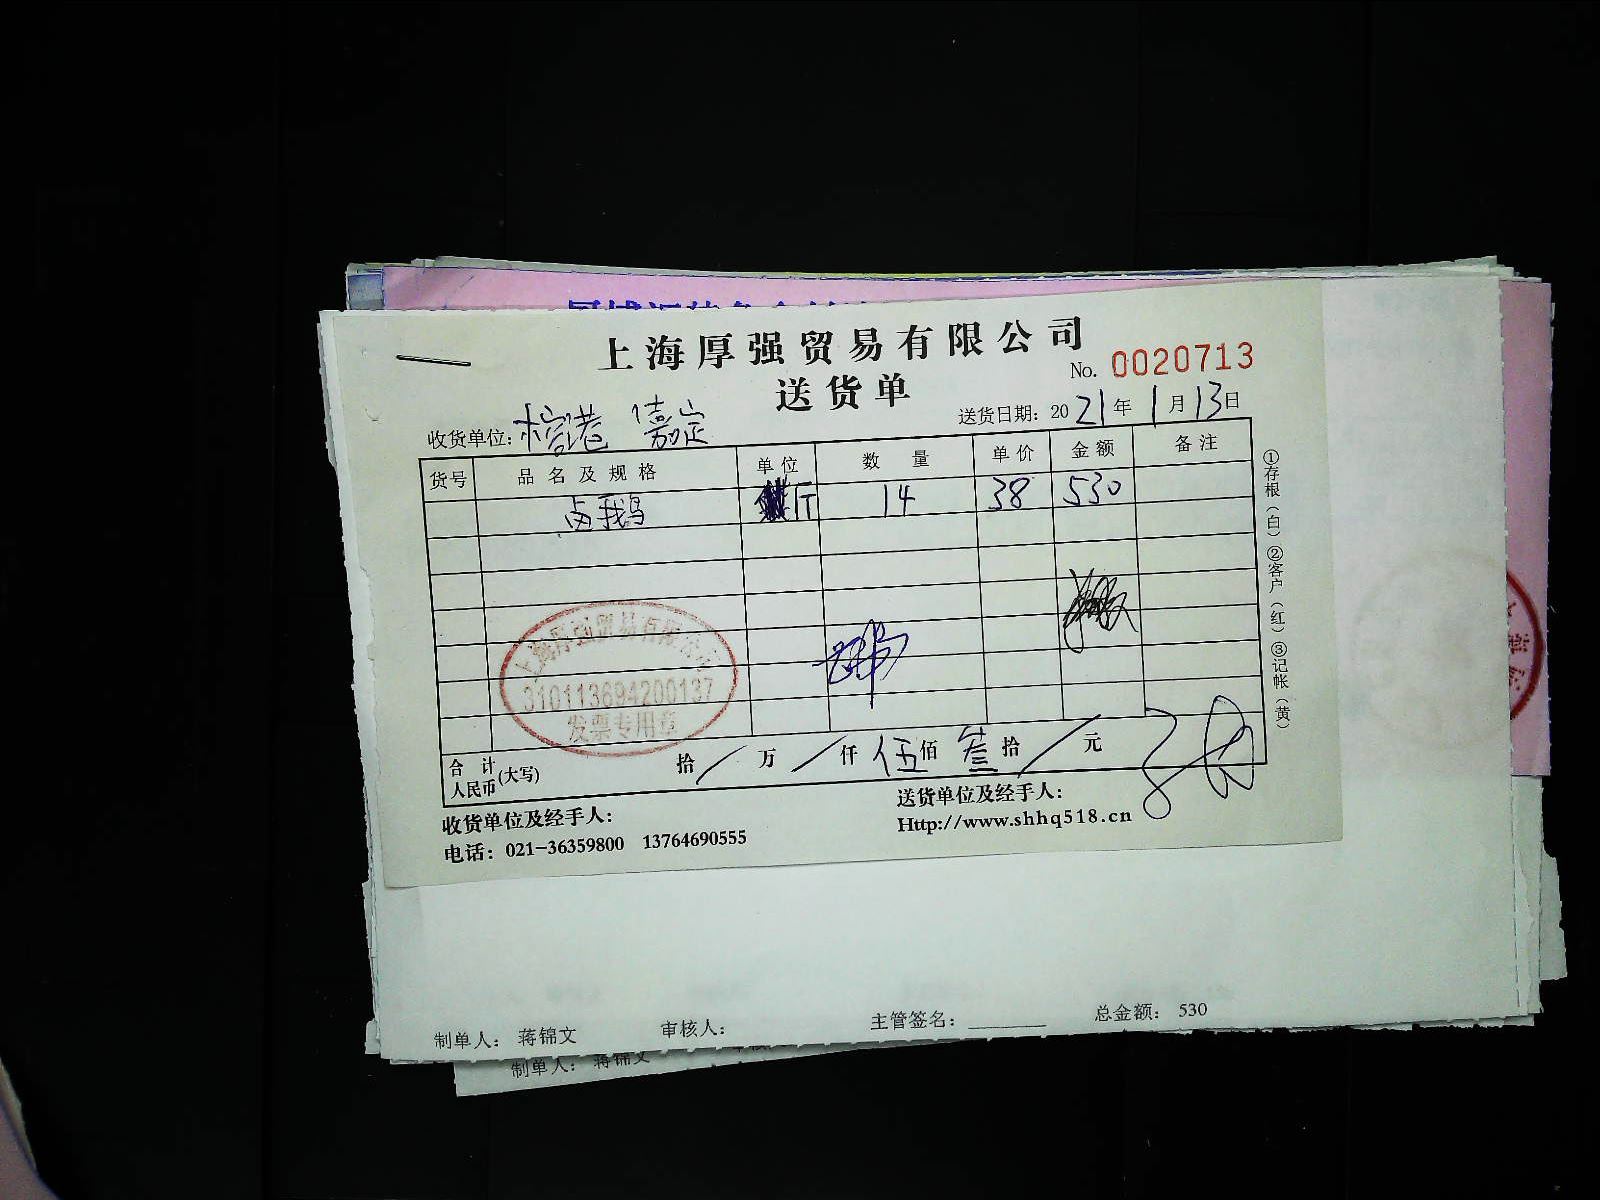 上海厚强贸易有限公司
No. 0020713
送货单
送货日期：2021年1月13日
收货单位：榕港 嘉定
货号 品名及规格 单位 数量 单价 金额 备注
卤鹅 斤 14 38 530
①存根（白）②客户（红）③记帐（黄）
上海厚强贸易有限公司
310113694200137
发票专用章
合计人民币(大写) 拾/万/仟伍佰叁拾/元
收货单位及经手人：
送货单位及经手人：
电话：021-36359800 13764690555
Http://www.shhq518.cn
制单人：蒋锦文 审核人： 主管签名：______ 总金额：530
制单人：蒋锦文